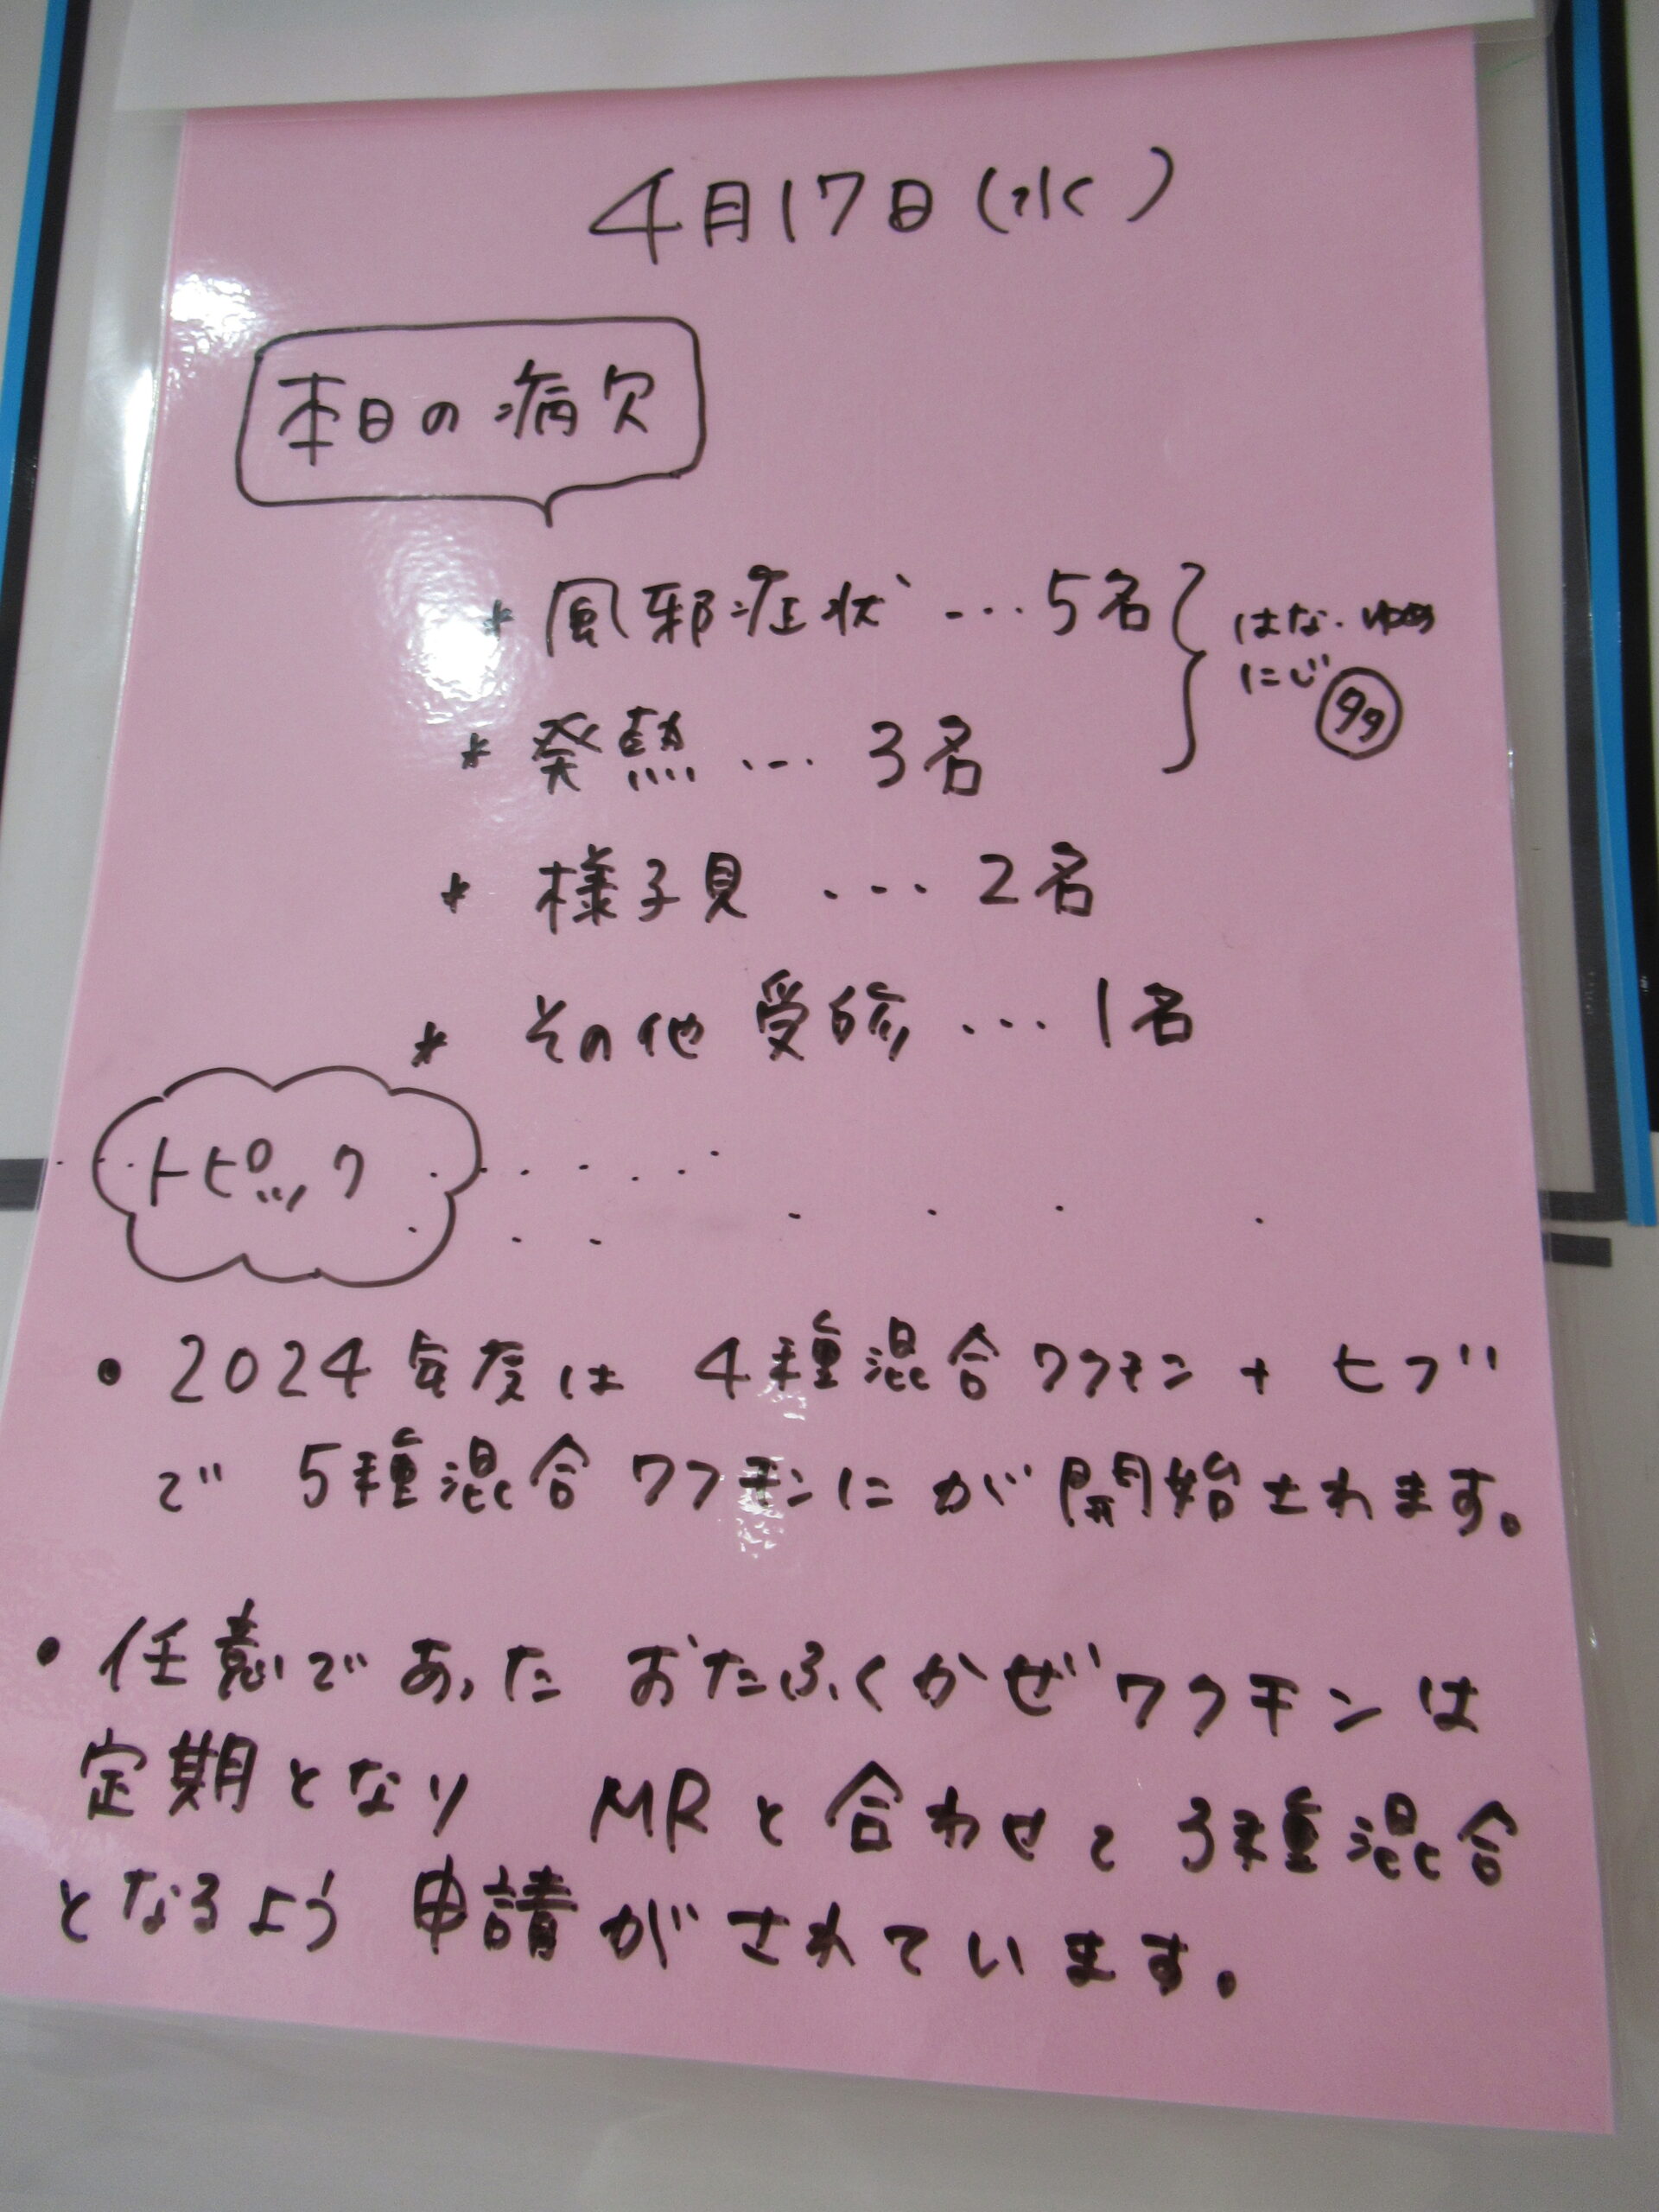 4月17日(水)
本日の病欠
* 風邪症状 … 5名
はな・ゆめ
にじ 多
* 発熱 … 3名
* 様子見 … 2名
* その他 受診 … 1名
トピック
・2024年度は 4種混合ワクチン + ヒブ
で 5種混合ワクチンにが開始されます。
・任意であった おたふくかぜワクチンは
定期となり MRと合わせて 3種混合
となるよう 申請がされています。